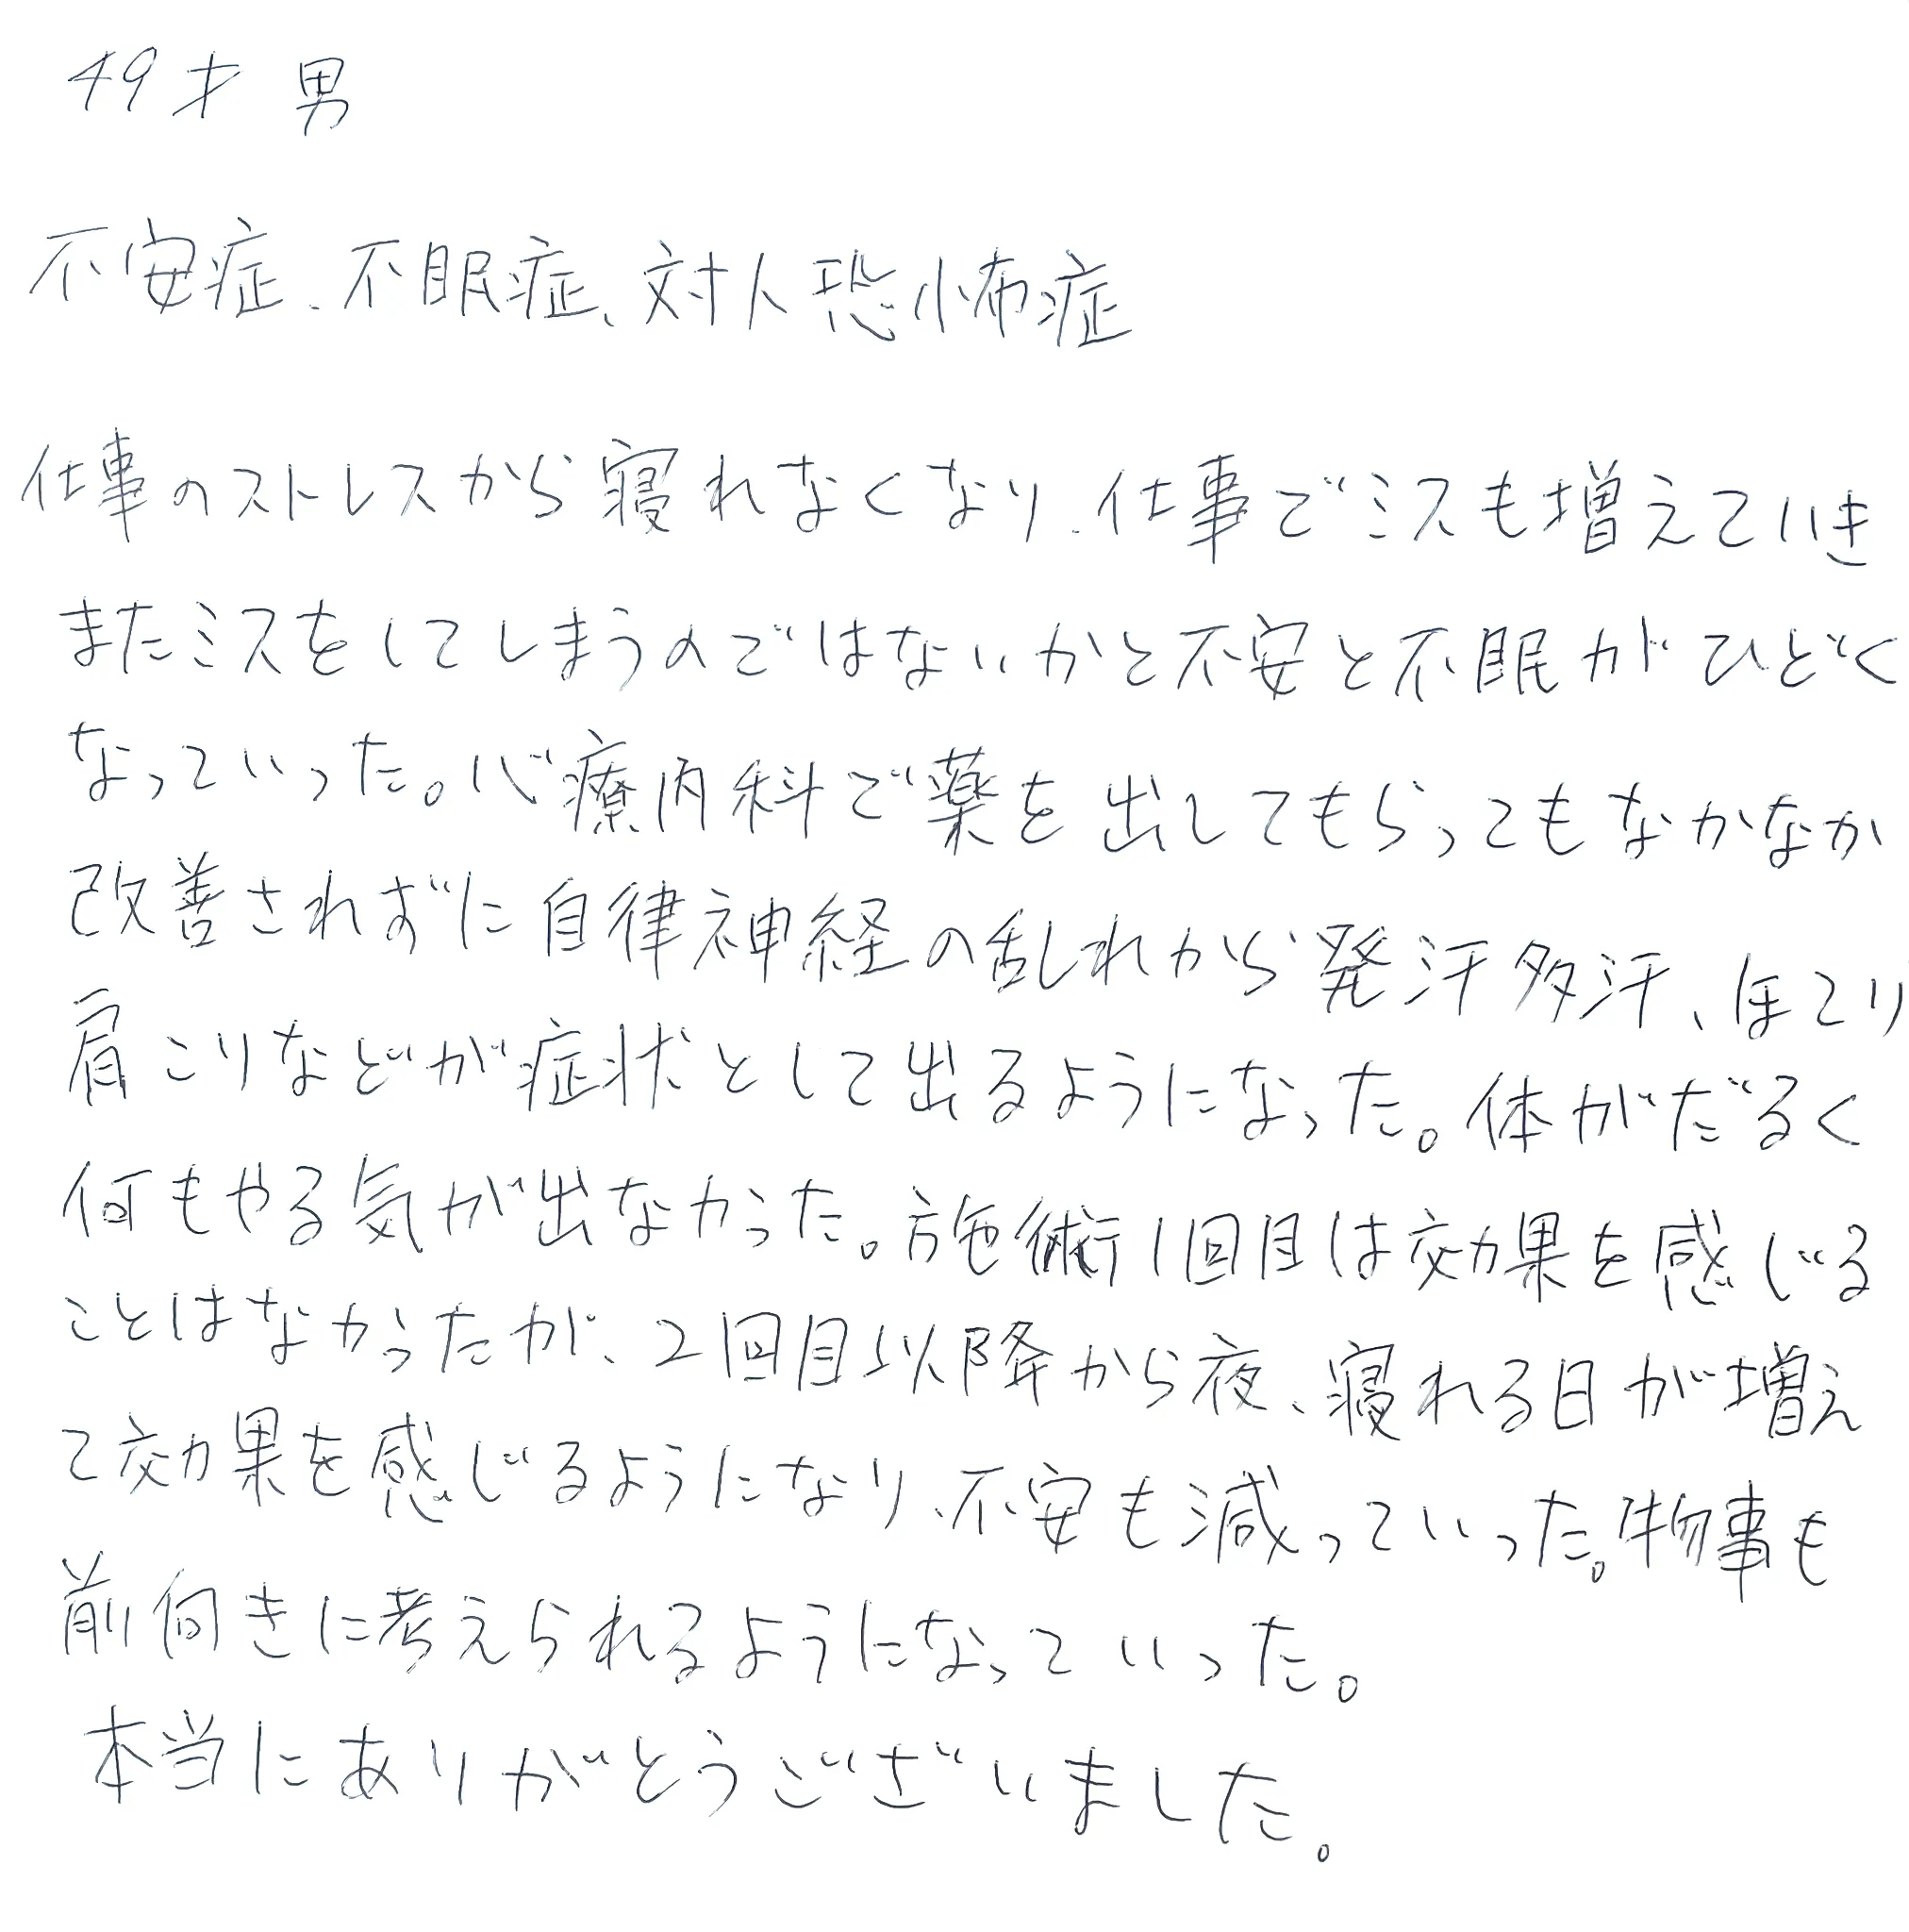 49才 男
不安症、不眠症、対人恐怖症
仕事のストレスから寝れなくなり、仕事でミスも増えていき
またミスをしてしまうのではないかと不安と不眠がひどく
なっていった。心療内科で薬を出してもらってもなかなか
改善されずに自律神経の乱れから発汗多汗、ほてり
肩こりなどが症状として出るようになった。体がだるく
何もやる気が出なかった。施術1回目は効果を感じる
ことはなかったが、2回目以降から夜、寝れる日が増え
て効果を感じるようになり、不安も減っていった。物事も
前向きに考えられるようになっていった。
本当にありがとうございました。